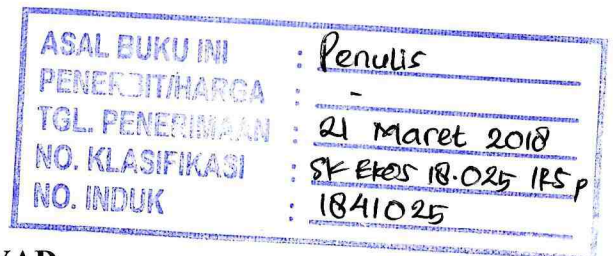 ASAL BUKU INI : Penulis
PENERBIT/HARGA : -
TGL. PENERIMAAN : 21 Maret 2018
NO. KLASIFIKASI : SK EKOS 18.025 IRS p
NO. INDUK : 1841025